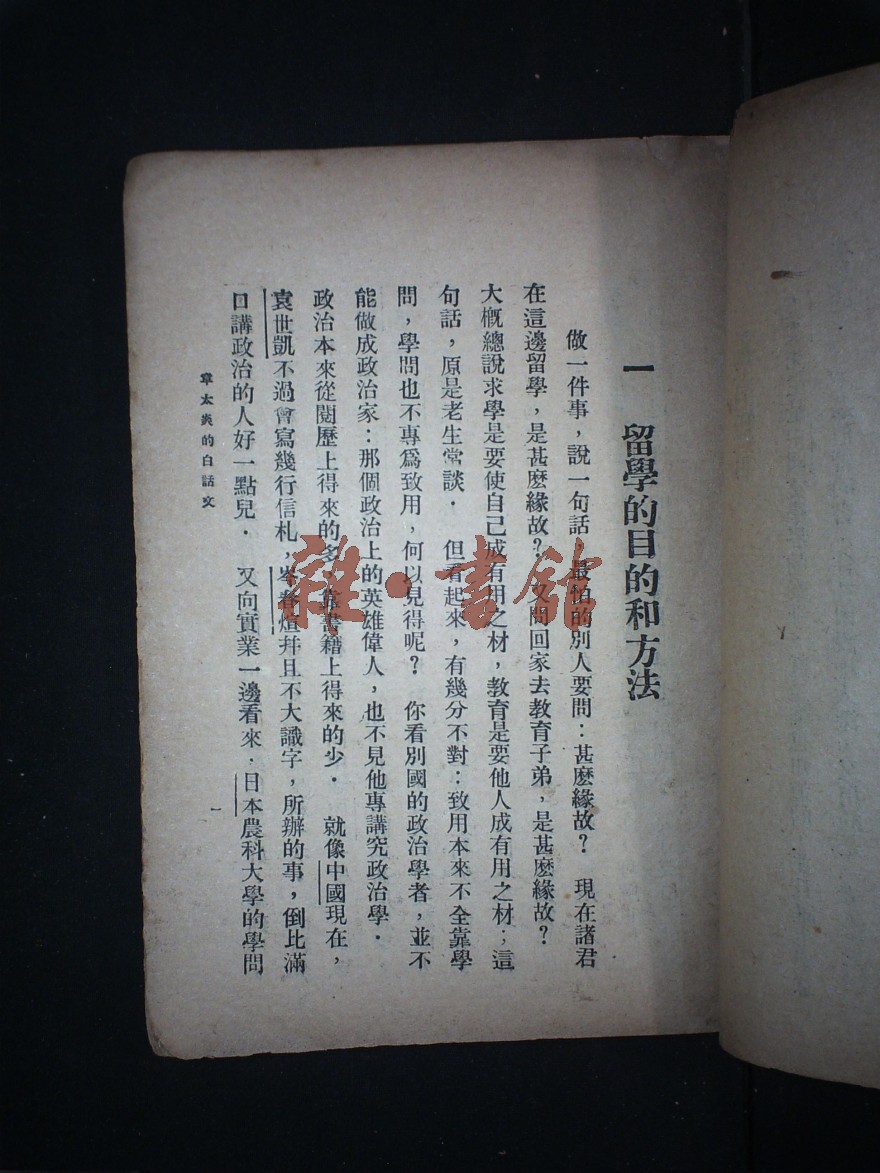 一　留學的目的和方法
做一件事，說一句話，最怕的別人要問：甚麼緣故？　現在諸君
在這邊留學，是甚麼緣故？　又問回家去教育子弟，是甚麼緣故？
大概總說求學是要使自己成有用之材，教育是要他人成有用之材；這
句話，原是老生常談．　但看起來，有幾分不對：致用本來不全靠學
問，學問也不專爲致用，何以見得呢？　你看別國的政治學者，並不
能做成政治家：那個政治上的英雄偉人，也不見他專講究政治學．
政治本來從閱歷上得來的多，靠書籍上得來的少．　就像中國現在，
袁世凱不過會寫幾行信札，岑春煊幷且不大識字，所辦的事，倒比滿
口講政治的人好一點兒．　又向實業一邊看來．日本農科大學的學問
章太炎的白話文
一
雜·書館